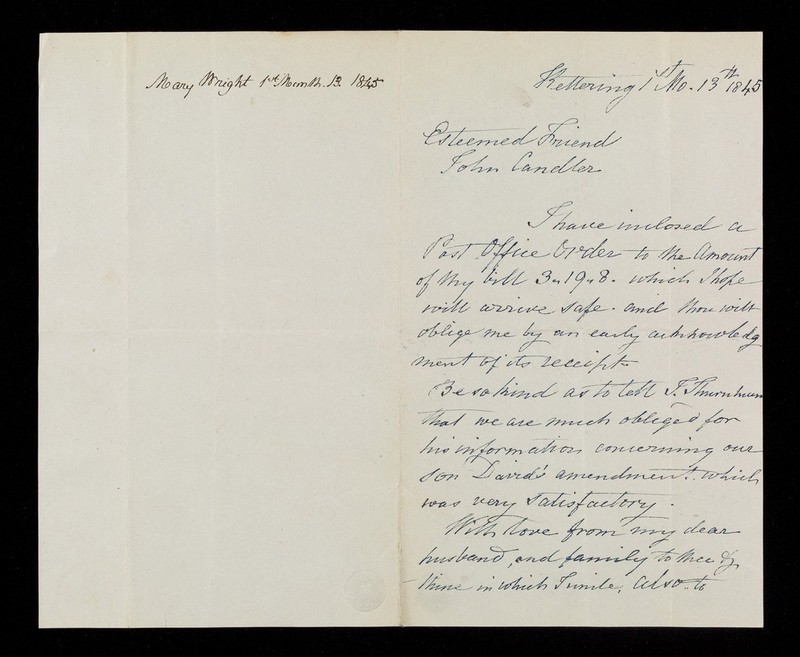 Mary Wright 1st Month. 13. 1845
Kettering 1st Mo. 13th 1845
Esteemed Friend
John Candler
I have inclosed a
Post Office Order to the Amount
of thy bill 3 " 19 " 8. which I hope
will arrive safe. and thou wilt
oblige me by an early acknowledg
ment of its receipt.
Be so kind as to tell T. Thurnham
that we are much obliged for
his information concerning our
son David's amendment. which
was very satisfactory.
With love from my dear
husband, and family to thee &
thine in which I unite, also to